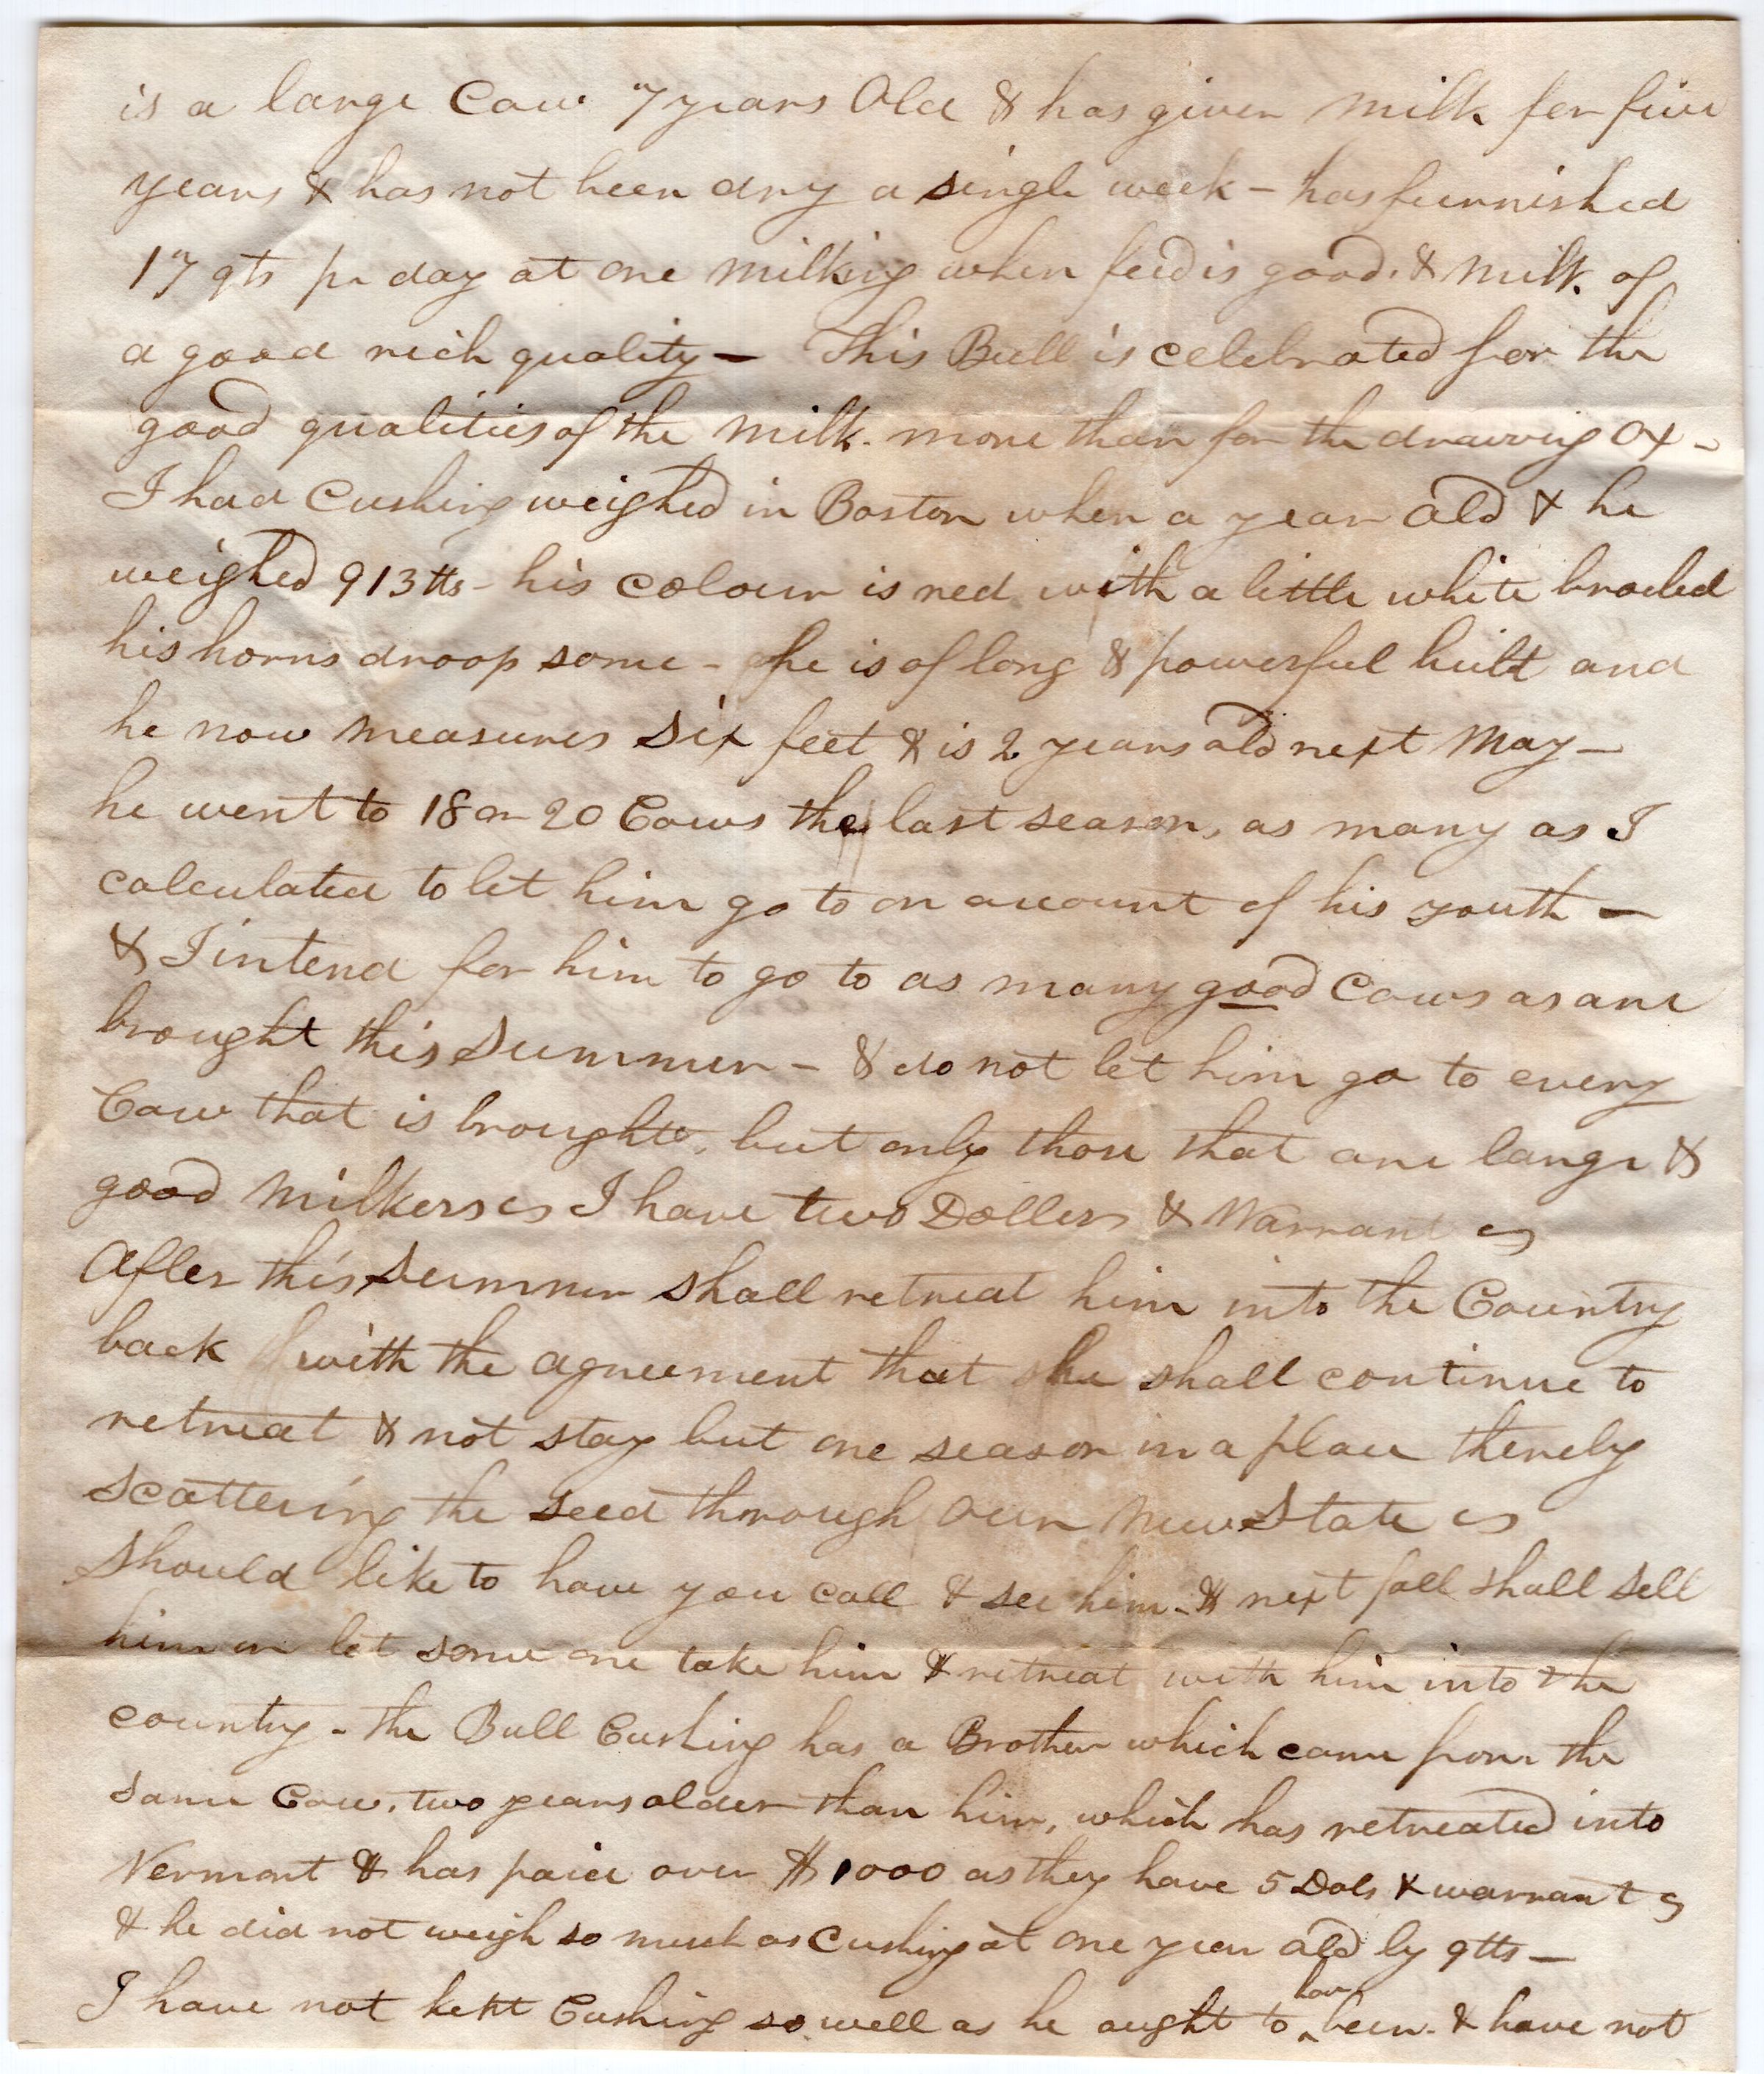 is a large Cow 7 years Old & has given milk for five
years & has not been dry a single week - has furnished
17 qts pr day at one milking when feed is good. & milk of
a good rich quality - This Bull is celebrated for the
good qualities of the milk. more than for the drawing Ox -
I had Cushing weighed in Boston when a year old & he
weighed 913 tts - his colour is red with a little white
his horns droop some - he is of long & powerful built and
he now measures six feet & is 2 years old next May -
he went to 18 or 20 Cows the last season, as many as I
calculated to let him go to on account of his youth -
& I intend for him to go to as many good Cows as are
brought this Summer - & do not let him go to every
Cow that is brought, but only those that are large &
good milkers I have two Dollers & Warrant
After this Summer shall retreat him into the Country
back with the agreement that he shall continue to
retreat & not stay but one season in a place thereby
scattering the seed through our New State
Should like to have you call & see him - & next fall shall sell
him or let some one take him & retreat with him into the
country - the Bull Cushing has a Brother which came from the
same Cow, two years older than him, which has retreated into
Vermont & has paid over $1000 as they have 5 Dols & warrant
& he did not weigh so much as Cushing at one year old by 9 tts -
I have not kept Cushing so well as he ought to have been. & have not